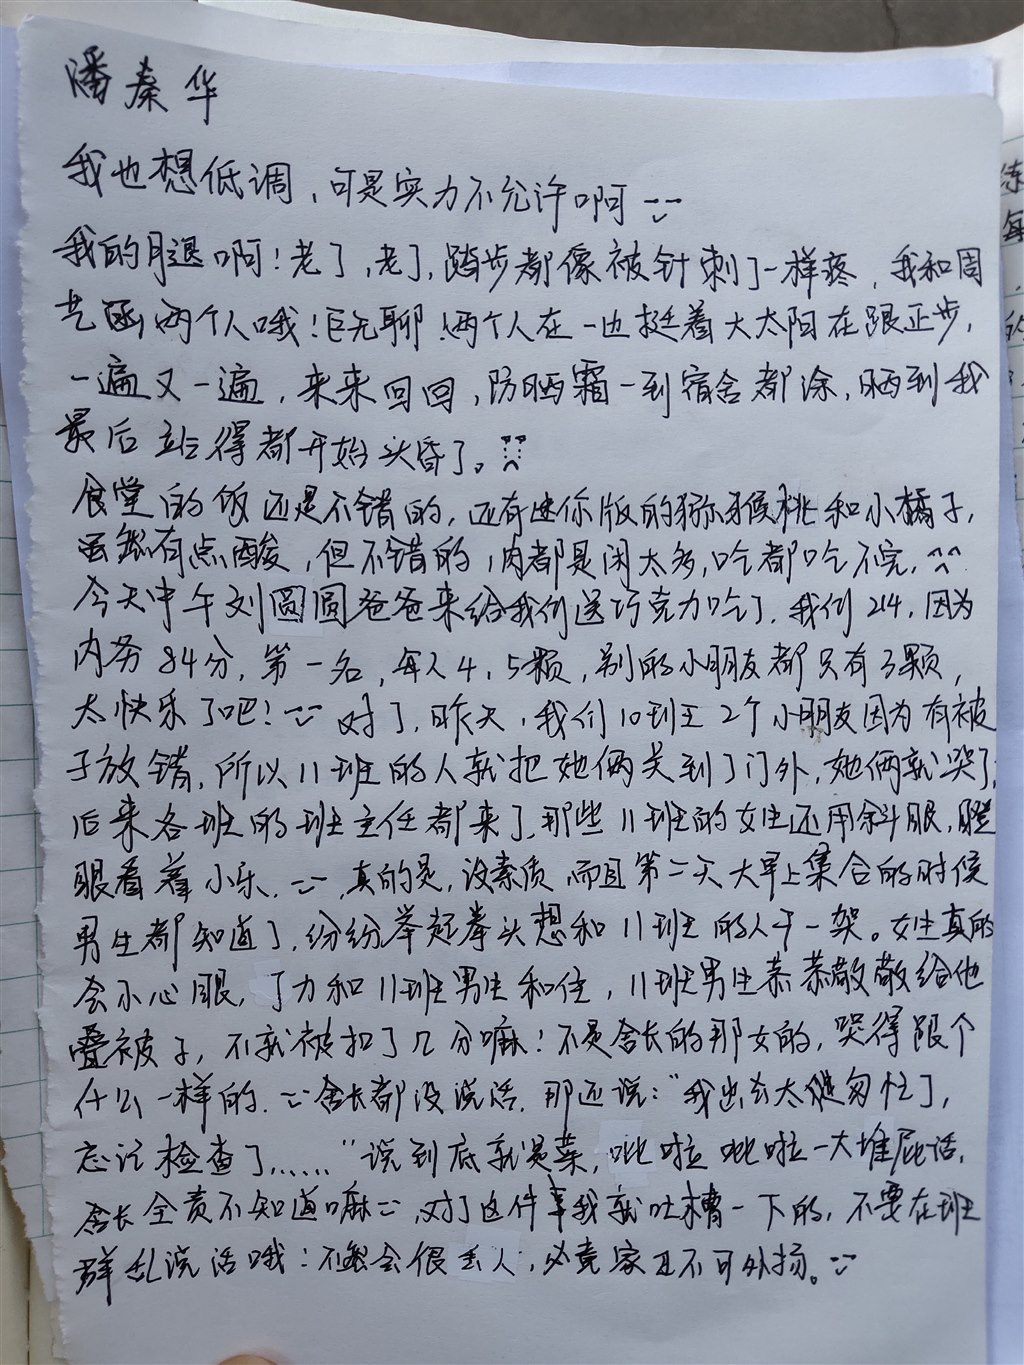 潘秦华
我也想低调，可是实力不允许啊
我的腿啊！老了，老了，踏步都像被针刺了一样疼，我和周
艺函两个人哦！巨无聊！两个人在一边挺着大太阳在踢正步，
一遍又一遍，来来回回，防晒霜一到宿舍都涂，晒到我
最后站得都开始头昏了。
食堂的饭还是不错的，还有迷你版的猕猴桃和小橘子，
虽然有点酸，但不错的，肉都是闲太多，吃都吃不完，^^
今天中午刘圆圆爸爸来给我们送巧克力吃了，我们214，因为
内务84分，第一名，每人4，5颗，别的小朋友都只有3颗，
太快乐了吧！对了，昨天，我们10班王2个小朋友因为有被
子放错，所以11班的人就把她俩关到了门外，她俩就哭了，
后来各班的班主任都来了，那些11班的女生还用斜眼，瞪
眼看着小乐，真的是，没素质，而且第二天大早上集合的时候
男生都知道了，纷纷举起拳头想和11班的人干一架。女生真的
会小心眼，丁力和11班男生和住，11班男生恭恭敬敬给他
叠被子，不就被扣了几分嘛！不是舍长的那女的，哭得跟个
什么一样的，舍长都没说话，那还说："我出去太匆忙了，
忘记检查了……"说到底就是菜，吡啦吡啦一大堆屁话，
舍长全责不知道嘛，对了这件事我就吐槽一下的，不要在班
群乱说话哦！不然会很丢人，必竟家丑不可外扬。